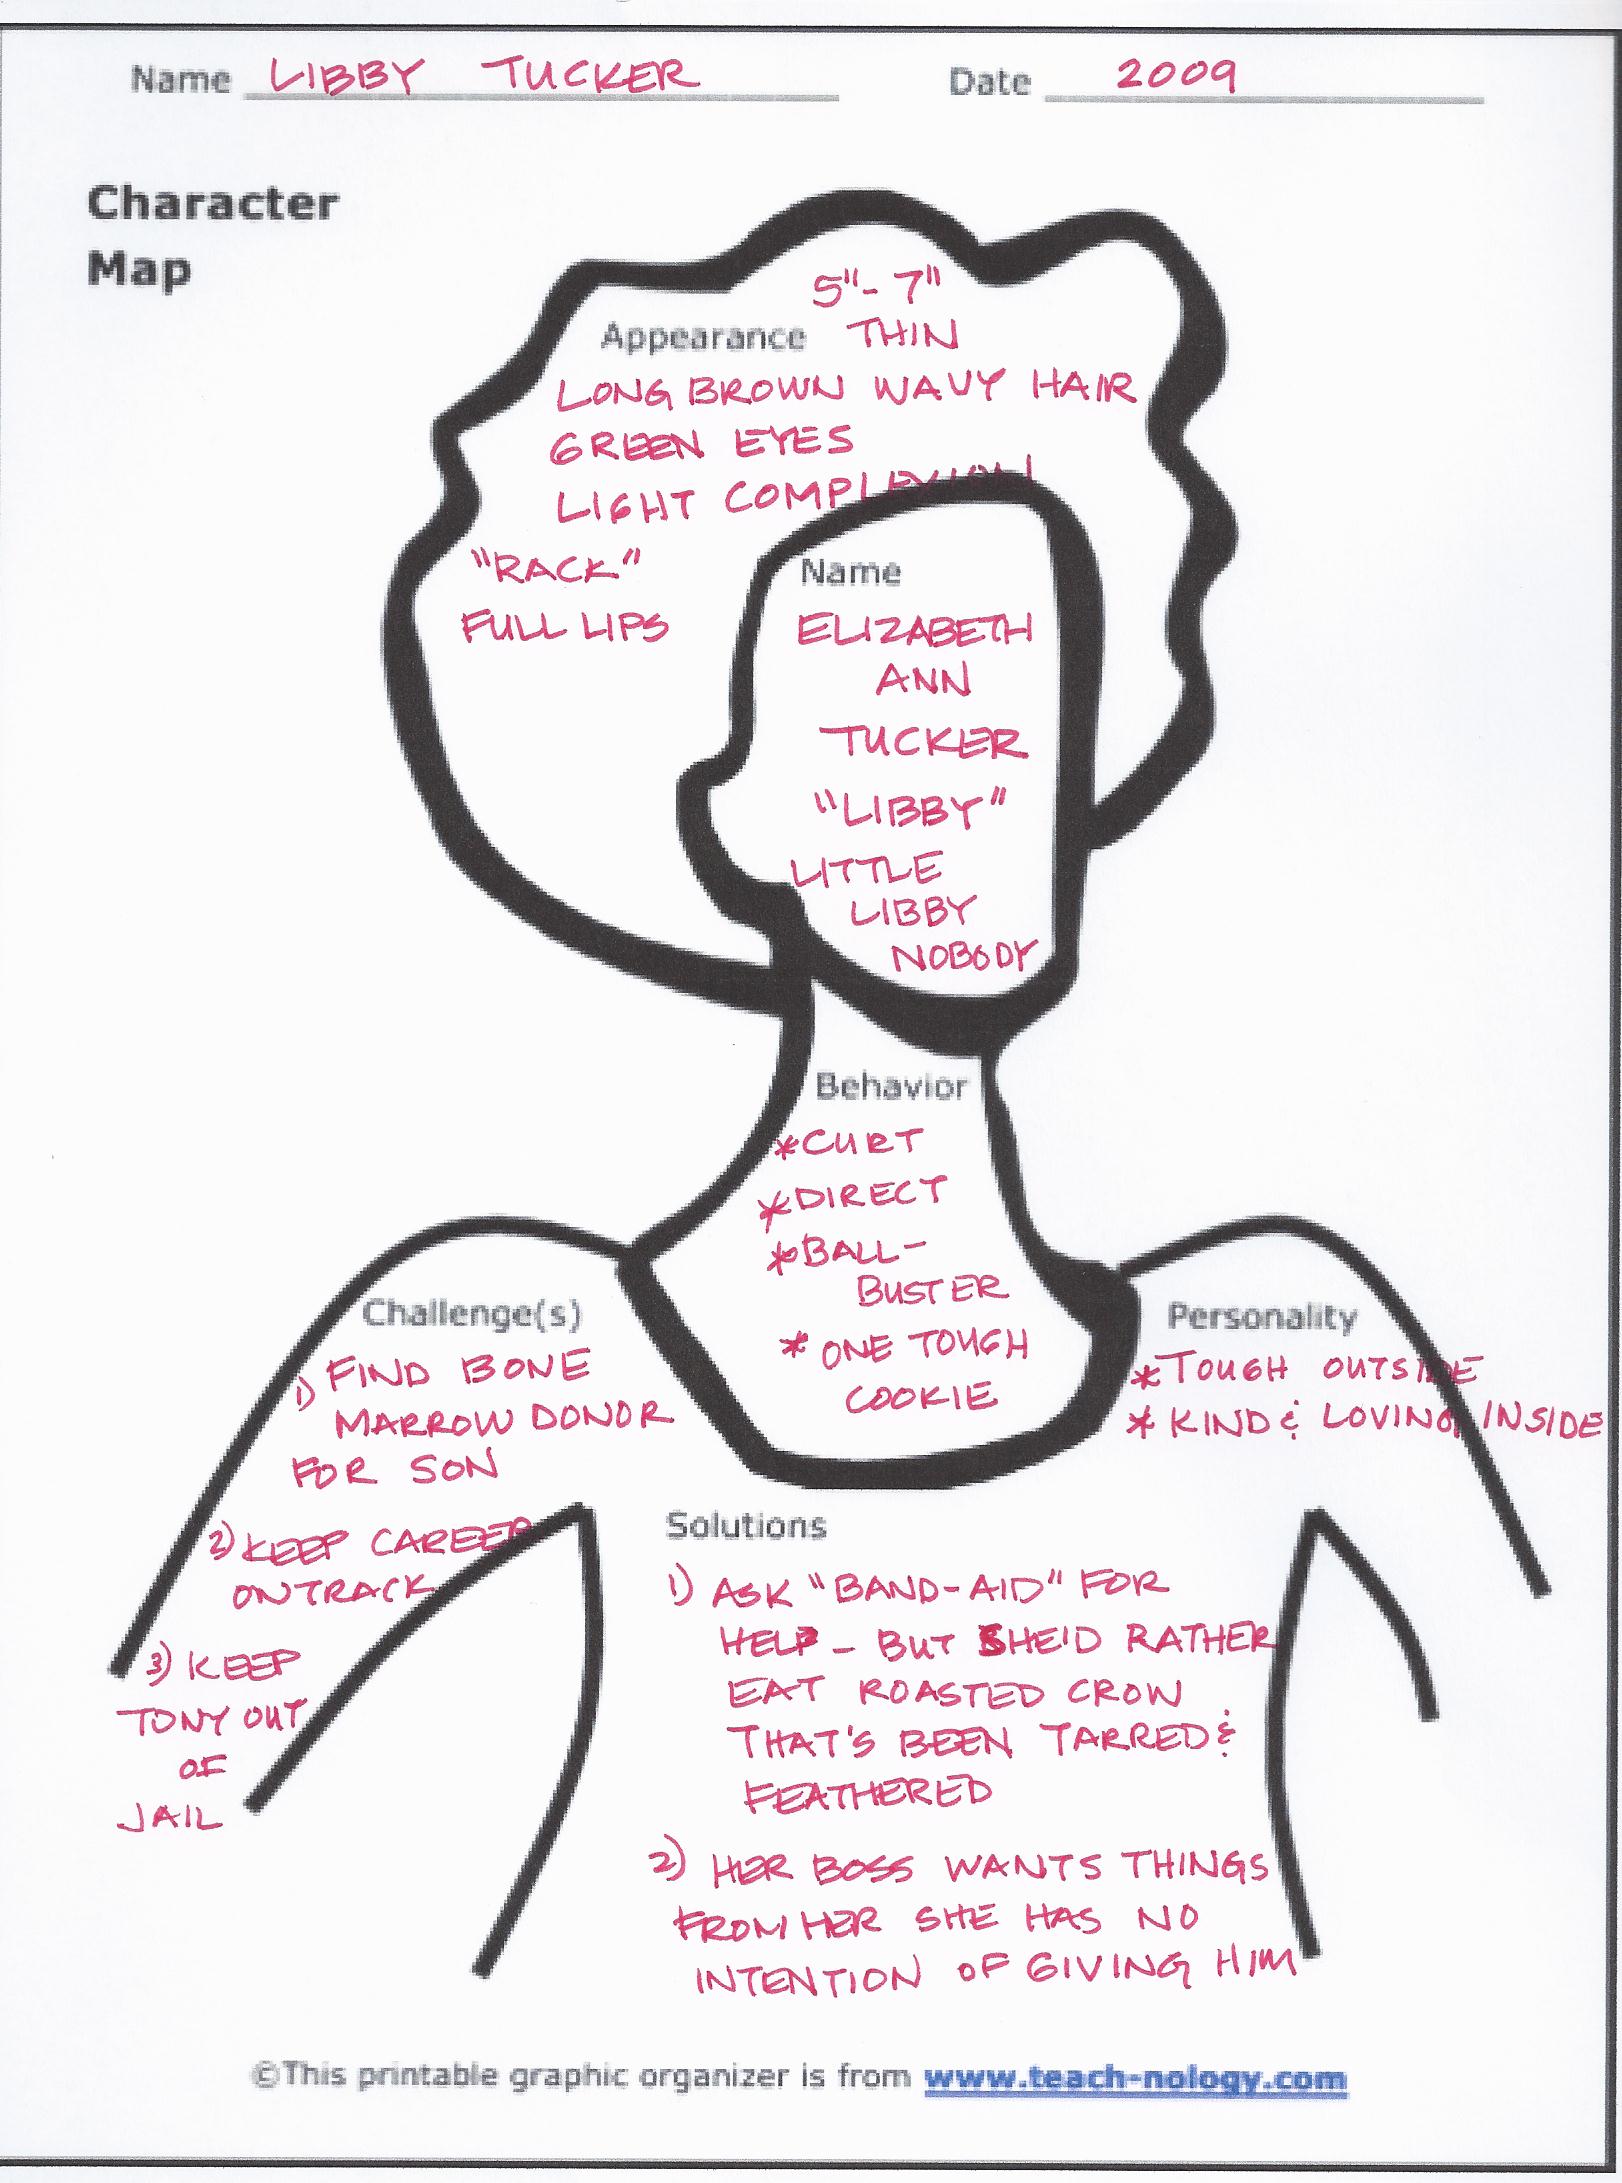 Name LIBBY TUCKER Date 2009
Character
Map
5"-7"
Appearance THIN
LONG BROWN WAVY HAIR
GREEN EYES
LIGHT COMPLEXION
"RACK"
FULL LIPS
Name
ELIZABETH
ANN
TUCKER
"LIBBY"
LITTLE
LIBBY
NOBODY
Behavior
*CURT
*DIRECT
*BALL-
BUSTER
* ONE TOUGH
COOKIE
Challenge(s)
1) FIND BONE
MARROW DONOR
FOR SON
2) KEEP CAREER
ON TRACK
3) KEEP
TONY OUT
OF
JAIL
Personality
*TOUGH OUTSIDE
* KIND & LOVING INSIDE
Solutions
1) ASK "BAND-AID" FOR
HELP - BUT SHE'D RATHER
EAT ROASTED CROW
THAT'S BEEN TARRED &
FEATHERED
2) HER BOSS WANTS THINGS
FROM HER SHE HAS NO
INTENTION OF GIVING HIM
©This printable graphic organizer is from www.teach-nology.com